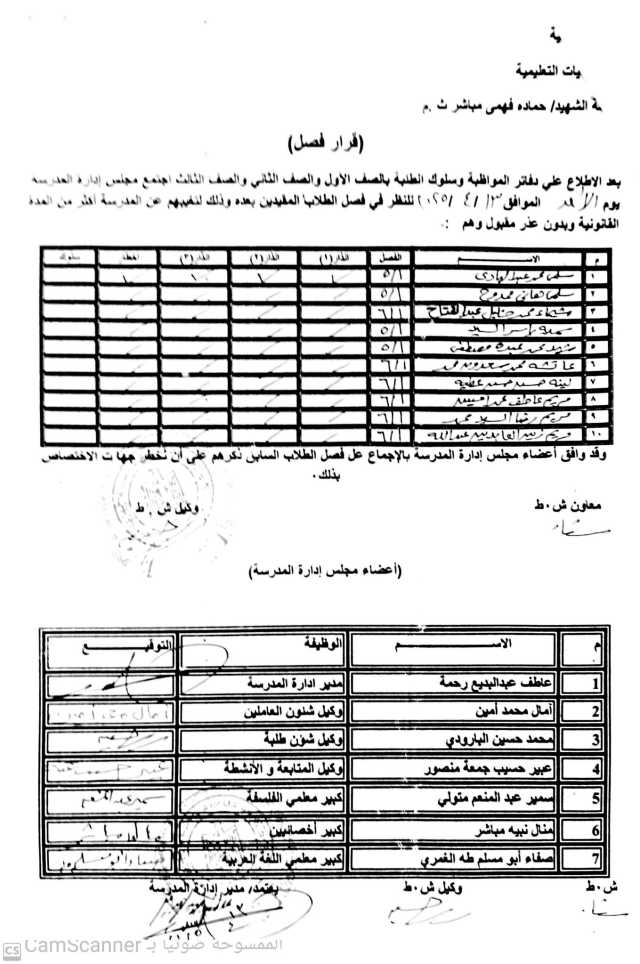 ية
يات التعليمية
ة الشهيد/ حماده فهمى مباشر ث .م
(قرار فصل)
بعد الاطلاع علي دفاتر المواظبة وسلوك الطلبة بالصف الأول والصف الثاني والصف الثالث اجتمع مجلس إدارة المدرسة
يوم الأحد الموافق ١٣ / ٤ / ٢٠٢٥ للنظر في فصل الطلاب المقيدين بعده وذلك لتغيبهم عن المدرسة أكثر من المدة
القانونية وبدون عذر مقبول وهم :
م الاســـم الفصل إنذار (١) إنذار (٢) إنذار (٣) سلوك
١ سلمى محمد عبد الهادى ٥/١
٢ سلمى هانى ممدوح ٥/١
٣ شيماء محمد خليل عبد الفتاح ٦/١
٤ سمية ياسر السيد ٥/١
٥ محمد عبده مصطفى ٥/١
٦ عائشه محمد محمد ٦/١
٧ لينه حسيد عطيه ٦/١
٨ مريم عاطف محمد ٦/١
٩ مريم رضا السيد محمد ٦/١
١٠ مريم زين العابدين عبدالله ٦/١
وقد وافق أعضاء مجلس إدارة المدرسة بالإجماع عل فصل الطلاب السابق ذكرهم على أن تخطر جهات الاختصاص
بذلك.
معاون ش.ط وكيل ش.ط
(أعضاء مجلس إدارة المدرسة)
م الاســـم الوظيفة التوقيـــع
1 عاطف عبدالبديع رحمة مدير ادارة المدرسة
2 آمال محمد أمين وكيل شئون العاملين
3 محمد حسين البارودي وكيل شؤن طلبة
4 عبير حسيب جمعة منصور وكيل المتابعة و الأنشطة
5 سمير عبد المنعم متولي كبير معلمي الفلسفة
6 منال نبيه مباشر كبير أخصائيين
7 صفاء أبو مسلم طه الغمري كبير معلمي اللغة العربية
ش.ط وكيل ش.ط يعتمد/ مدير إدارة المدرسة
الممسوحة ضوئيا بـ CamScanner
CS